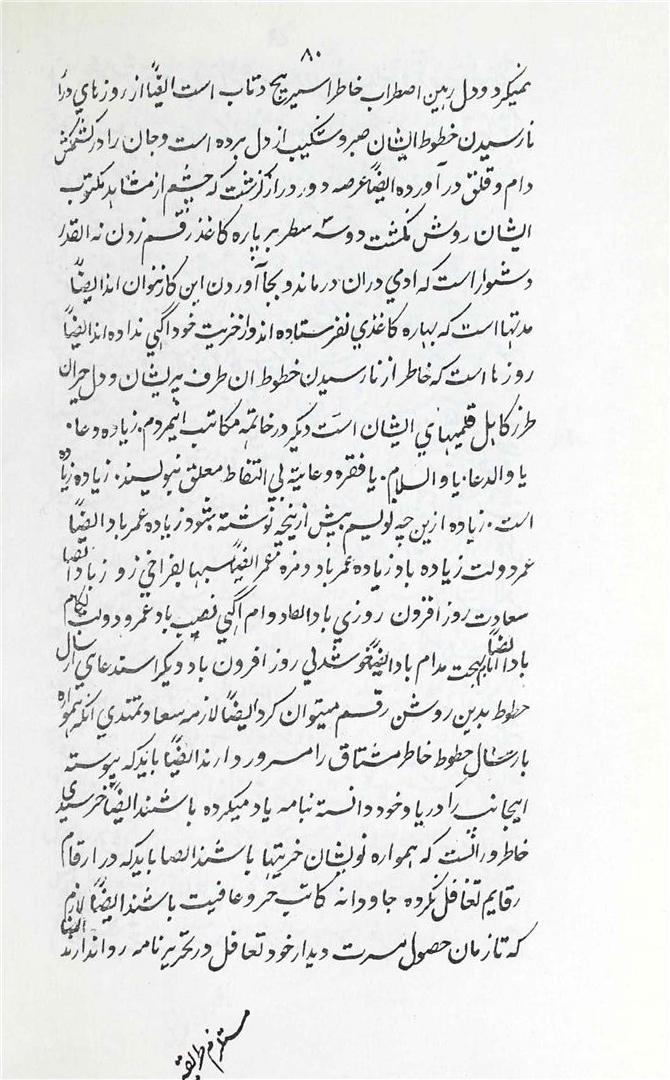 ۸۰
نمیکرد و دل رهین اضطراب خاطر اسیر پیچ و تاب است ایضاً از روزهای دراز
نارسیدن خطوط ایشان صبر و شکیب از دل برده است و جان را در کشمکش
دام و قلق در آورده ایضاً عرصه دور دراز گزشت که چشم از مشاهد مکتوب
ایشان روشن نگشت دو سه سطر بر پاره کاغذ رقم زدن نه انقدر
دشوار است که ادمی دران درماند و بجا آوردن این کار نتوان اما ایضاً
مدتها است که بپاره کاغذی نفرستاده اند و از خیریت خود اگهی نداده اند ایضاً
روزها است که خاطر از نارسیدن خطوط ان طرف پریشان و دل حیران
طرز کاهل قلمیهای ایشان است دیگر در خاتمه مکاتب اینمردم زیاده دعا
یا والدعا یا والسلام یا فقره دعاییه بی التفاط معلق نبویسند زیاده زیاده
است زیاده ازین چه نویسم بیش ازینچه نوشته شود زیاده عمر باد ایضاً
عمر دولت زیاده باد زیاده عمر باد و مزه عمر ایضاً سبها بفراخی رو زیاد ایضا
سعادت روز افزون روزی باد ایضا دوام اگهی نصیب باد عمر و دولت بکام
باد ایضاً ایام بهجت مدام باد ایضاً خوشدلی روز افرون باد دیگر استدعای ارسال
خطوط بدین روشن رقم میتوان کرد ایضاً لازمه سعادتمندی انکه همواره
بارسال خطوط خاطر مشتاق را مسرور دارند ایضاً باید که پیوسته
اینجانب را در یاد خود دانسته بنامه یاد میکرده باشند ایضاً خرسندی
خاطر در انست که همواره نویشان خیریتها باشند ایضا باید که در ارقام
رقایم تغافل نکرده جاودانه کاتب خیر و عافیت باشند ایضاً لازم
که تا زمان حصول مسرت دیدار خود تغافل در تحریر نامه روا ندارند ایضا
مستلزم طریقه